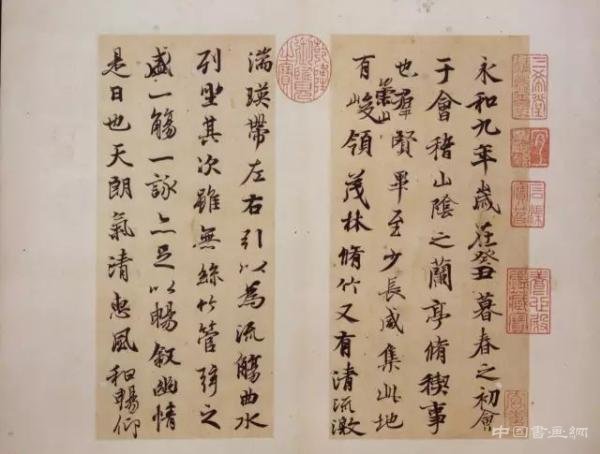 永和九年歲在癸丑暮春之初會
于會稽山陰之蘭亭脩禊事
也羣賢畢至少長咸集此地
崇山
有峻領茂林脩竹又有清流激
湍暎帶左右引以為流觴曲水
列坐其次雖無絲竹管弦之
盛一觴一詠亦足以暢敘幽情
是日也天朗氣清惠風和暢仰
三希堂
中国書画網